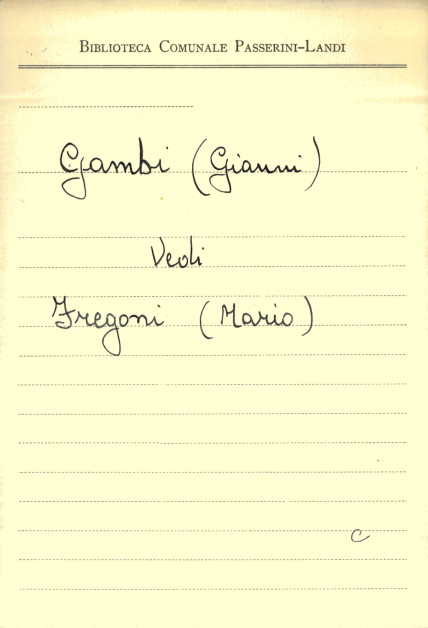 Biblioteca Comunale Passerini-Landi
Gambi (Gianni)
Vedi
Fregoni (Mario)
C